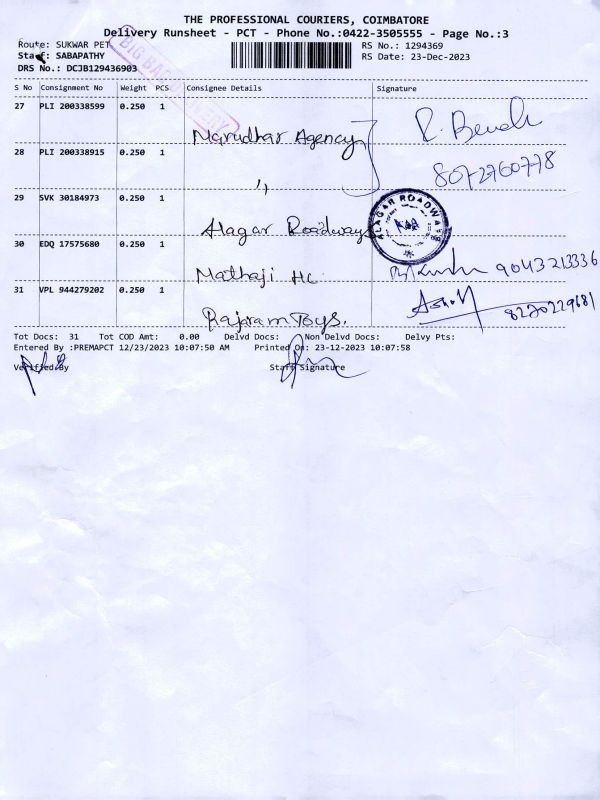 THE PROFESSIONAL COURIERS, COIMBATORE
Delivery Runsheet - PCT - Phone No.:0422-3505555 - Page No.:3
Route: SUKWAR PET RS No.: 1294369
Staff: SABAPATHY RS Date: 23-Dec-2023
DRS No.: DCJB129436903
S No Consignment No Weight PCS Consignee Details Signature
27 PLI 200338599 0.250 1 Marudhar Agency
28 PLI 200338915 0.250 1 " 8072760778
29 SVK 30184973 0.250 1 Alagar Roadways ALAGAR ROADWAYS
30 EDQ 17575680 0.250 1 Mathaji Hc 9043213336
31 VPL 944279202 0.250 1 Rajaram Toys. 8220229681
Tot Docs: 31 Tot COD Amt: 0.00 Delvd Docs: Non Delvd Docs: Delvy Pts:
Entered By :PREMAPCT 12/23/2023 10:07:50 AM Printed On: 23-12-2023 10:07:58
Verified By Staff Signature